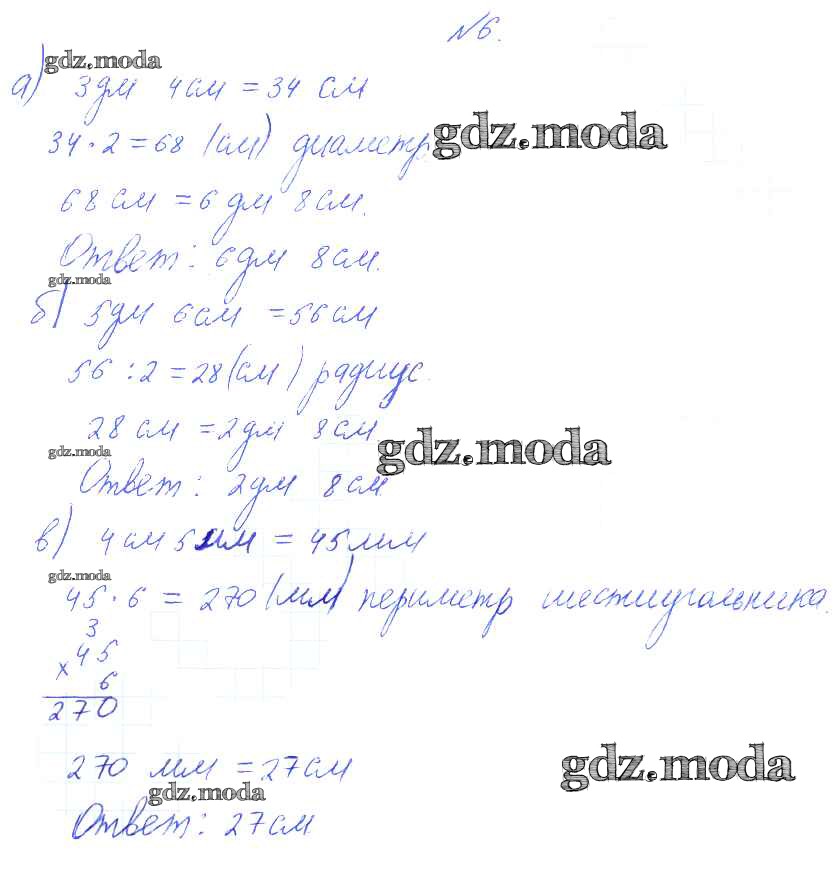 №6.
gdz.moda
а) 3дм 4см = 34 см
34 · 2 = 68 (см) диаметр
gdz.moda
68 см = 6 дм 8 см.
Ответ: 6дм 8 см.
gdz.moda
б) 5дм 6см = 56 см
56 : 2 = 28 (см) радиус.
28 см = 2дм 8 см
gdz.moda
gdz.moda
Ответ: 2дм 8 см
в) 4см 5мм = 45мм
gdz.moda
45 · 6 = 270 (мм) периметр шестиугольника.
3
× 45
6
270
270 мм = 27см
gdz.moda
gdz.moda
Ответ: 27см